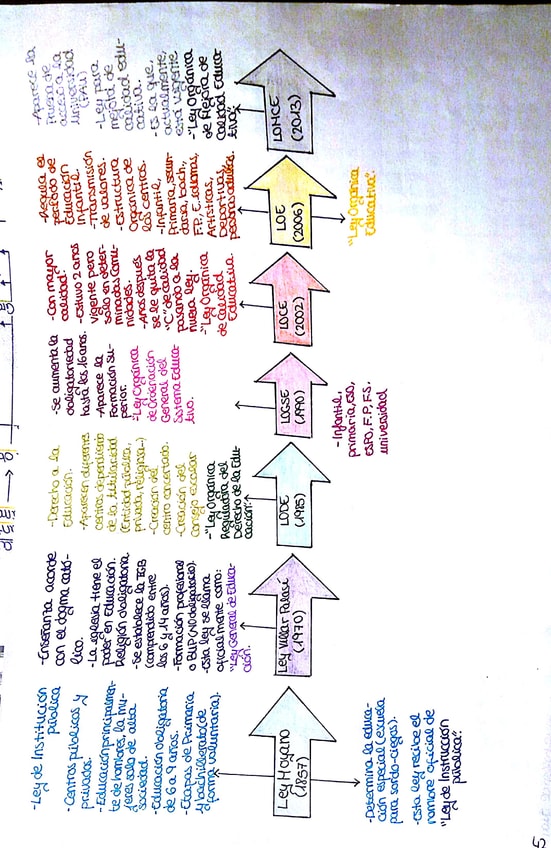 -Ley de Institución
pública
- Centros públicos y
privados.
-Educación principalmen-
te de hombres, la mu-
jeres solo de alta
sociedad.
-Educación obligatoria
de 6 a 9 años.
-Etapas de Primaria
y bachillerato (de
forma voluntaria).
Ley Moyano
(1857)
-Determina la educa-
ción especial (escuela
para sordo-ciegos).
-Esta ley recibe el
nombre oficial de
"Ley de Institución
pública".
-Enseñanza acorde
con el dogma cató-
lico.
-La iglesia tiene el
poder en Educación.
Religión obligatoria
-Se establece la EGB
(comprendido entre
los 6 y 14 años).
-Formación profesional
o BUP (NO obligatorio).
-Esta ley se llama
oficialmente como:
"Ley General de Educa-
ción.
Ley Villar Palasí
(1970)
-Derecho a la
Educación.
-Aparecen diferentes
centros dependiendo
de la titularidad
(Entidad pública,
privada, religiosa...)
-Creación del
centro concertado.
-Creación del
Consejo escolar
-"Ley Orgánica
Reguladora del
Derecho de la Edu-
cación".
LODE
(1985)
-Se aumenta la
obligatoriedad
hasta los 16 años.
-Aparece la
Formación Su-
perior.
-"Ley Orgánica
de Ordenación
General del
Sistema Educa-
tivo.
LOGSE
(1990)
-Infantil,
primaria, ESO,
ESPO, F.P., F.S.,
universidad
-Con mayor
calidad.
-Estuvo 2 años
vigente pero
solo en deter-
minadas Comu-
nidades.
-Años después
se le quita la
"C" de calidad
pasando a la
nueva ley.
-"Ley Orgánica
de Calidad
Educativa.
LOCE
(2002)
-Regula el
período de
Educación
Infantil.
-Transmisión
de valores.
-Estructura
Orgánica de
los centros.
-Infantil,
Primaria, secun-
daria, bach,
F.P., E. idiomas,
Artísticas,
Deportivas,
personas adultas.
LOE
(2006)
"Ley Orgánica
Educativa".
-Aparece la
Prueba de
acceso a la
universidad
-Ley para
mejora de
calidad edu-
cativa.
-Es la que,
actualmente,
está vigente
-"Ley Orgánica
de Mejora de
Calidad Educa-
tiva".
LOMCE
(2013)
5